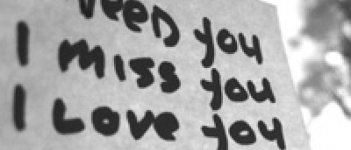 need you
I miss you
I Love you